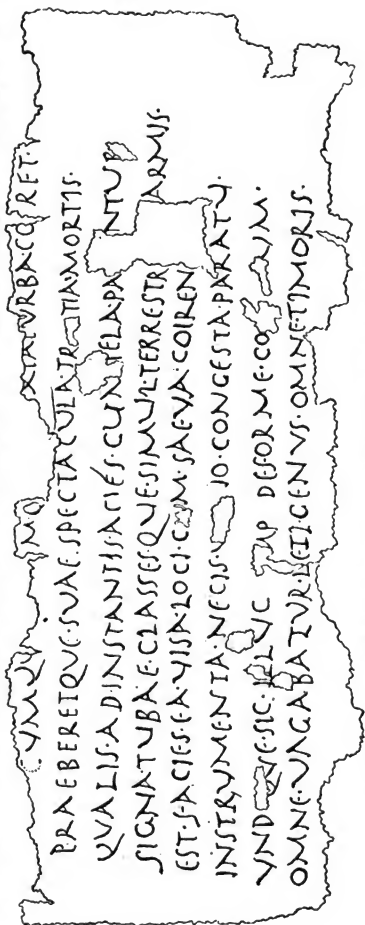 VMQV MQ XIA·TVRBA·CO RET·
PRAEBERETQVE·SVAE·SPECTACVLA·TR TIA·MORTIS·
QVALIS·AD·INSTANTIS·ACIES·CVM·TELA·PA NTVR
SIGNA·TVBAE·CLASSESQVE·SIMVL·TERRESTR ARMIS·
EST·FACIES·EA·VISA·LOCI·C M·SAEVA·COIREN
INSTRVMENTA·NECIS·V IO·CONGESTA·PARATV·
VND QVE·SIC·ILLVC MP DEFORME·CO VM·
OMNE·VAGABATVR·LETI·GENVS·OMNE·TIMORIS·